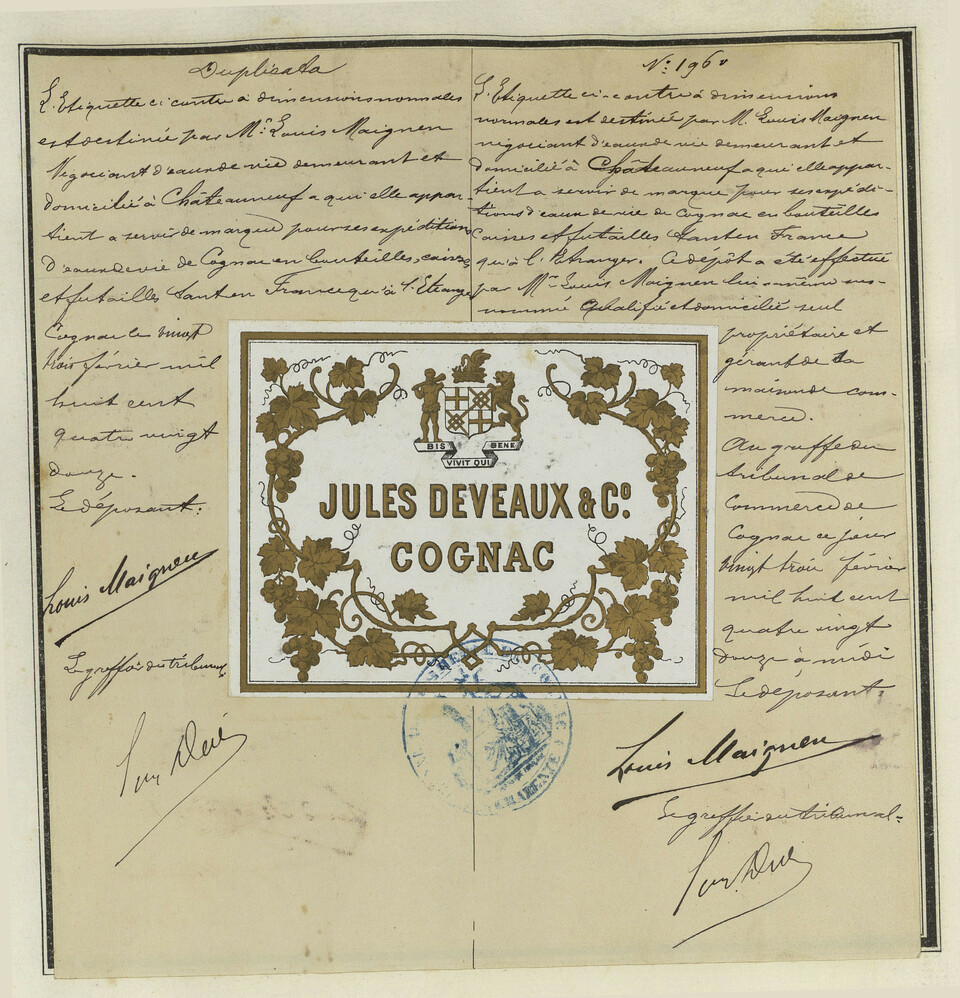 Duplicata
L'Etiquette ci contre à dimensions normales
est destinée par Mr. Louis Maignen
Négociant d'eaux de vie demeurant et
domicilié à Châteauneuf a qui elle appar-
tient a servir de marque pour ses expéditions
d'eaux de vie de Cognac en bouteilles, caisses
et futailles tant en France qu'à l'Etranger
Cognac le vingt
trois février mil
huit cent
quatre vingt
douze.
Le déposant:
Louis Maignen
Le greffier du tribunal
No: 1960
L'Etiquette ci-contre à dimensions
normales est destinée par M. Louis Maignen
négociant d'eaux de vie demeurant et
domicilié à Châteauneuf a qui elle appar-
tient a servir de marque pour ses expédi-
tions d'eaux de vie de Cognac en bouteilles
caisses et futailles tant en France
qu'à l'Etranger. Ce dépôt a été effectué
par Mr Louis Maignen lui-même sus-
nommé qualifié et domicilié seul
propriétaire et
gérant de la
maison de com-
merce.
Au greffe du
tribunal de
Commerce de
Cognac ce jour
vingt trois février
mil huit cent
quatre vingt
douze à midi
Le déposant:
Louis Maignen
Le greffier du tribunal-
BIS BENE
VIVIT QUI
JULES DEVEAUX & Co.
COGNAC